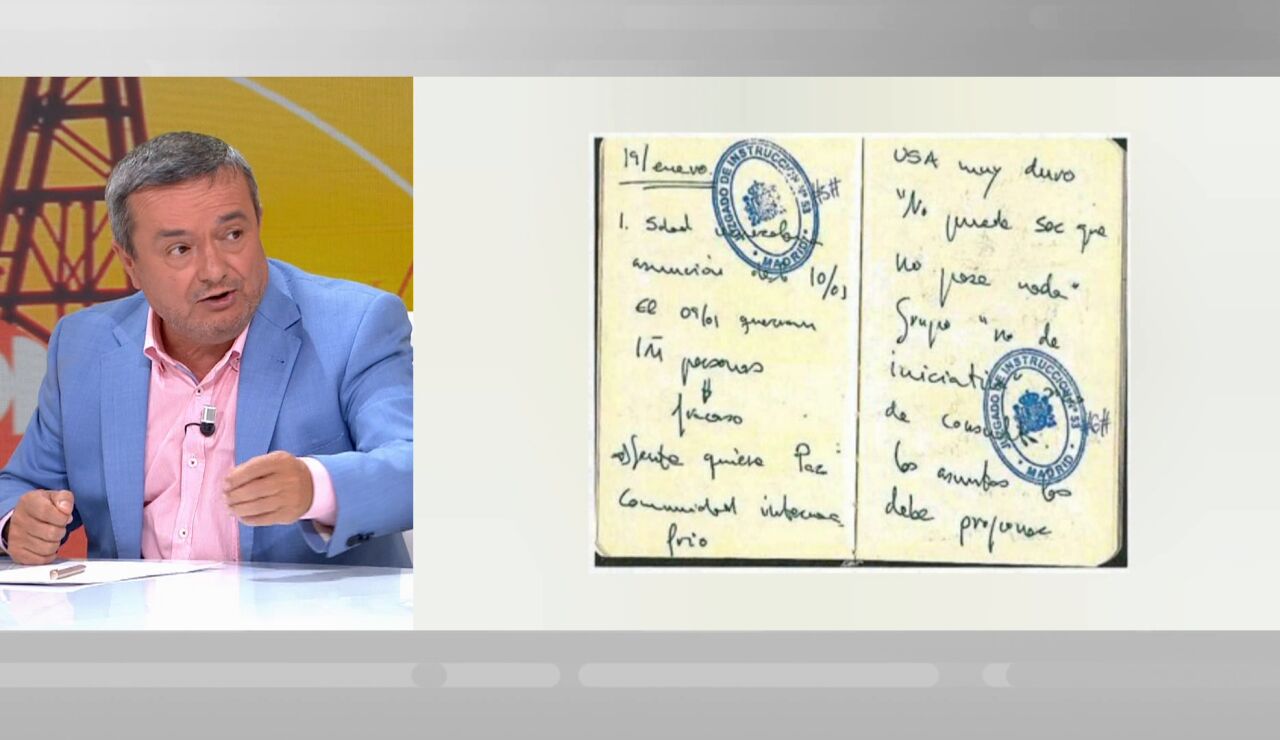 19/enero
1. Sdad
asunción del 10/01
el 09/01 querían
1M personas
fracaso
gente quiere Paz
Comunidad internac
frio
JUZGADO DE INSTRUCCION Nº 53
MADRID
#5#
USA muy duro
"No puede ser que
no pase nada"
Grupo "no de
iniciati
de
los asuntos los
debe proponer
JUZGADO DE INSTRUCCION Nº 53
MADRID
#6#